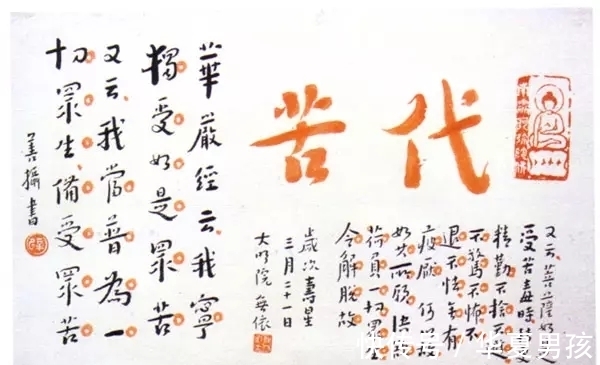 代苦
又云菩薩如是
受苦毒時轉
精勤不捨不避
不驚不怖不
退不怯無有
疲厭何以故
如其所願決
荷負一切眾生
令解脫故
歲次壽星
三月二十一日
大明院無依
華嚴經云我寧
獨受如是眾苦
又云我當普為一
切眾生備受眾苦
善攝書
快传号 / 华夏男孩